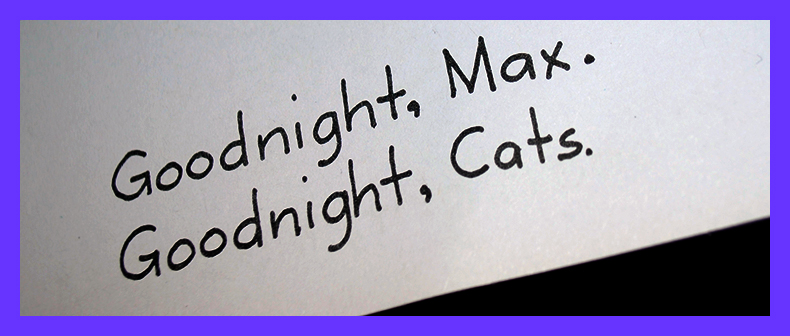 Goodnight, Max.
Goodnight, Cats.